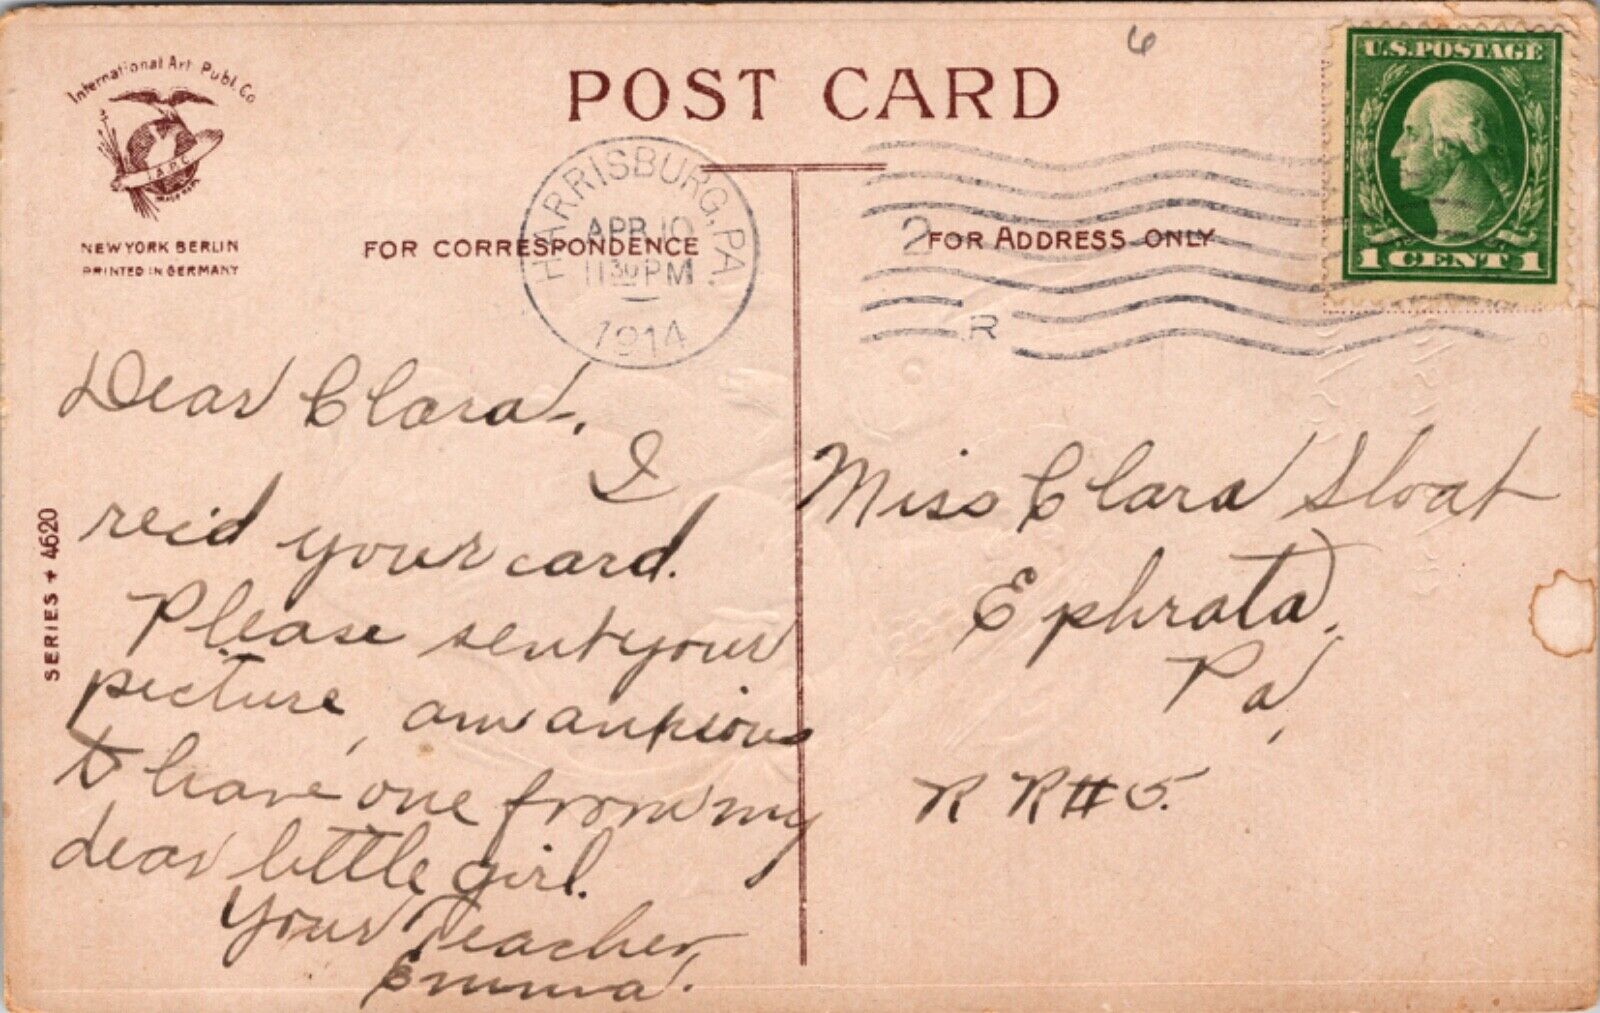 6
U.S. POSTAGE
1 CENT 1
International Art Publ. Co
I.A.P.C.
NEW YORK BERLIN
PRINTED IN GERMANY
POST CARD
FOR CORRESPONDENCE
FOR ADDRESS ONLY
HARRISBURG, PA.
APR 10
11 30 PM
1914
2
R
SERIES 4620
Dear Clara-.
I
rec'd your card.
Please sent your
picture, am anxious
to have one from my
dear little girl.
Your Teacher,
Emma.
Miss Clara Sloat
Ephrata,
Pa,
R R # 5.